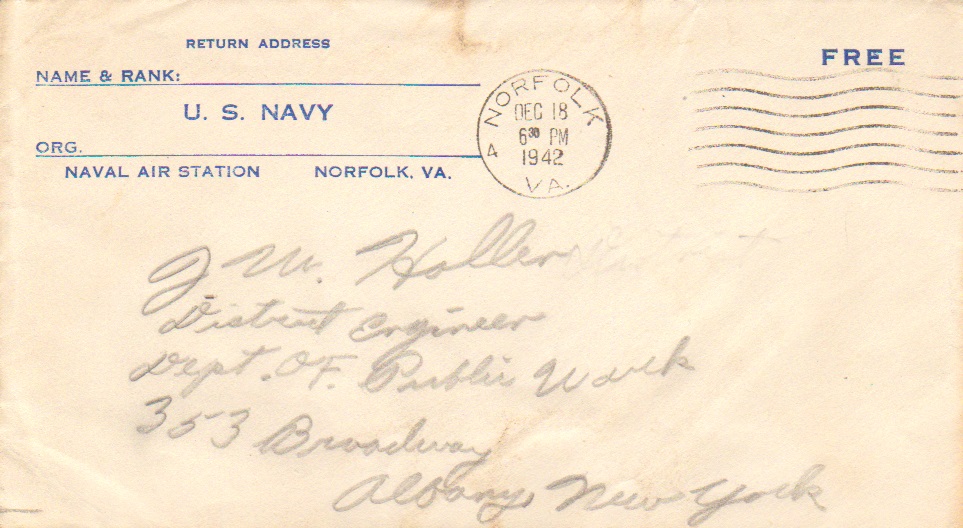 RETURN ADDRESS
NAME & RANK:
U. S. NAVY
ORG.
NAVAL AIR STATION NORFOLK, VA.
NORFOLK
DEC 18
6 30 PM
1942
4
VA.
FREE
J W. Holler
District Engineer
Dept. OF. Public Work
353 Broadway
Albany, New York